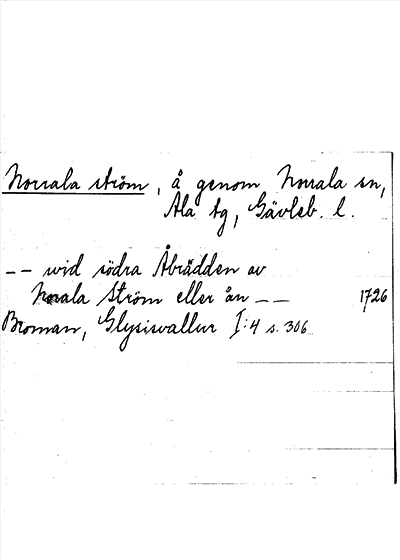 Norrala ström, å genom Norrala sn,
Ala tg, Gävleb. l.
-- wid södra Åbrädden av
Norala Ström eller ån -- 1726
Broman, Glysisvallur I:4 s. 306